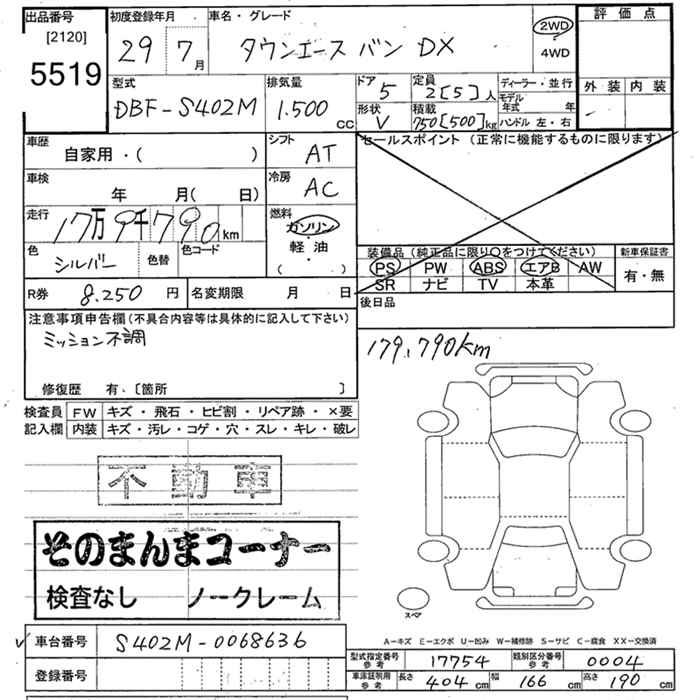 出品番号
[2120]
5519
初度登録年月
29年 7月
車名・グレード
タウンエース バン DX
2WD
4WD
評価点
外装 内装
型式
DBF-S402M
排気量
1.500 CC
ドア 5
形状 V
定員 2[5]人
積載 750[500]kg
ディーラー・並行
モデル年式 年
ハンドル 左・右
車歴
自家用・( )
シフト AT
セールスポイント (正常に機能するものに限ります)
車検
年 月( 日)
冷房 AC
走行
17万9千790km
燃料
ガソリン
・
軽・油
・
( )
色 シルバー
色替
色コード
装備品 (純正品に限り○をつけてください)
PS PW ABS エアB AW
SR ナビ TV 本革
新車保証書
有・無
R券 8.250 円
名変期限 月 日
後日品
注意事項申告欄 (不具合内容等は具体的に記入して下さい)
ミッション不調
修復歴 有.〔箇所 〕
179,790km
検査員記入欄
FW キズ・飛石・ヒビ割・リペア跡・×要
内装 キズ・汚レ・コゲ・穴・スレ・キレ・破レ
不動車
そのまんまコーナー
検査なし ノークレーム
スペア
A-キズ E-エクボ U-凹み W-補修跡 S-サビ C-腐食 XX-交換済
車台番号 S402M-0068636
登録番号
型式指定番号 参考 17754
類別区分番号 参考 0004
車庫証明用 参考 長さ 404 cm 幅 166 cm 高さ 190 cm